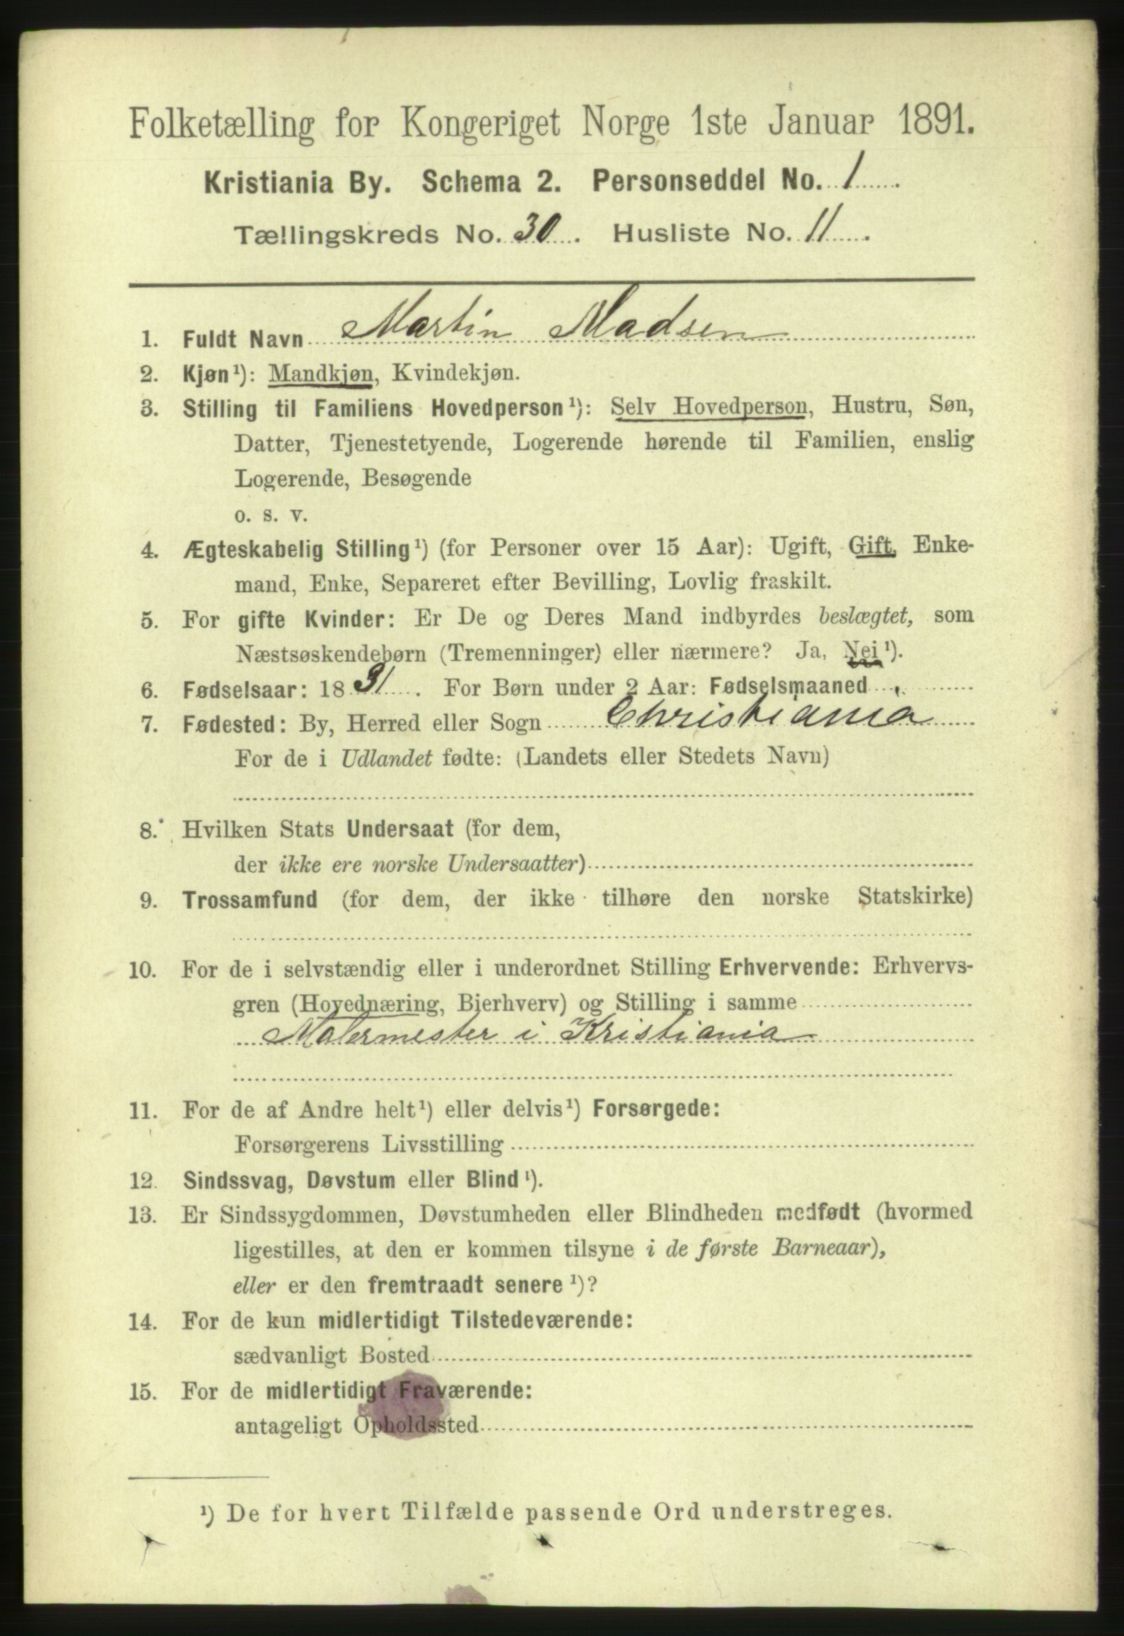 Folketælling for Kongeriget Norge 1ste Januar 1891.
Kristiania By. Schema 2. Personseddel No. 1.
Tællingskreds No. 30. Husliste No. 11.
1. Fuldt Navn Martin Madsen
2. Kjøn¹): Mandkjøn, Kvindekjøn.
3. Stilling til Familiens Hovedperson¹): Selv Hovedperson, Hustru, Søn,
Datter, Tjenestetyende, Logerende hørende til Familien, enslig
Logerende, Besøgende
o. s. v.
4. Ægteskabelig Stilling¹) (for Personer over 15 Aar): Ugift, Gift, Enke-
mand, Enke, Separeret efter Bevilling, Lovlig fraskilt.
5. For gifte Kvinder: Er De og Deres Mand indbyrdes beslægtet, som
Næstsøskendebørn (Tremenninger) eller nærmere? Ja, Nei¹).
6. Fødselsaar: 1831. For Børn under 2 Aar: Fødselsmaaned
7. Fødested: By, Herred eller Sogn Christiania
For de i Udlandet fødte: (Landets eller Stedets Navn)
8. Hvilken Stats Undersaat (for dem,
der ikke ere norske Undersaatter)
9. Trossamfund (for dem, der ikke tilhøre den norske Statskirke)
10. For de i selvstændig eller i underordnet Stilling Erhvervende: Erhvervs-
gren (Hovednæring, Bierhverv) og Stilling i samme
Malermester i Kristiania
11. For de af Andre helt¹) eller delvis¹) Forsørgede:
Forsørgerens Livsstilling
12. Sindssvag, Døvstum eller Blind¹).
13. Er Sindssygdommen, Døvstumheden eller Blindheden medfødt (hvormed
ligestilles, at den er kommen tilsyne i de første Barneaar),
eller er den fremtraadt senere¹)?
14. For de kun midlertidigt Tilstedeværende:
sædvanligt Bosted
15. For de midlertidigt Fraværende:
antageligt Opholdssted
¹) De for hvert Tilfælde passende Ord understreges.